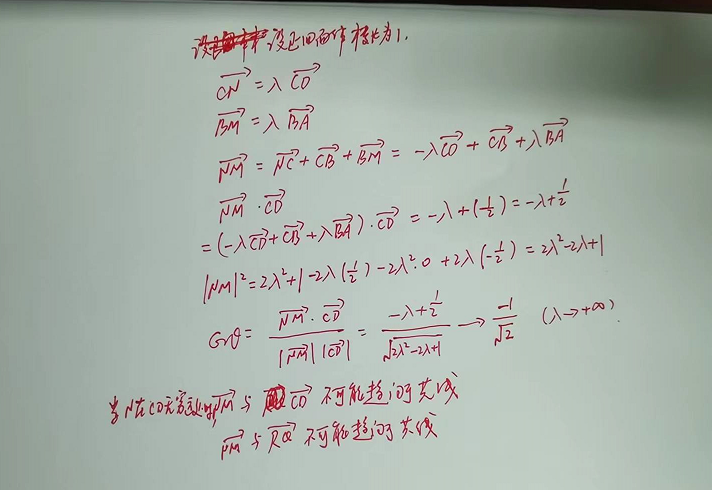 设正四面体棱长为1.
$\overrightarrow{CN} = \lambda \overrightarrow{CD}$
$\overrightarrow{BM} = \lambda \overrightarrow{BA}$
$\overrightarrow{NM} = \overrightarrow{NC} + \overrightarrow{CB} + \overrightarrow{BM} = -\lambda\overrightarrow{CD} + \overrightarrow{CB} + \lambda\overrightarrow{BA}$
$\overrightarrow{NM} \cdot \overrightarrow{CD}$
$= (-\lambda\overrightarrow{CD} + \overrightarrow{CB} + \lambda\overrightarrow{BA}) \cdot \overrightarrow{CD} = -\lambda + (\frac{1}{2}) = -\lambda + \frac{1}{2}$
$|NM|^2 = 2\lambda^2 + 1 - 2\lambda(\frac{1}{2}) - 2\lambda^2 \cdot 0 + 2\lambda(-\frac{1}{2}) = 2\lambda^2 - 2\lambda + 1$
$\cos\theta = \frac{\overrightarrow{NM} \cdot \overrightarrow{CD}}{|\overrightarrow{NM}| |\overrightarrow{CD}|} = \frac{-\lambda + \frac{1}{2}}{\sqrt{2\lambda^2 - 2\lambda + 1}} \to \frac{-1}{\sqrt{2}} \quad (\lambda \to +\infty).$
当N在CD无穷远时, $\overrightarrow{NM}$ 与 $\overrightarrow{CD}$ 不可能趋向于共线
$\overrightarrow{NM}$ 与 $\overrightarrow{RQ}$ 不可能趋向于共线